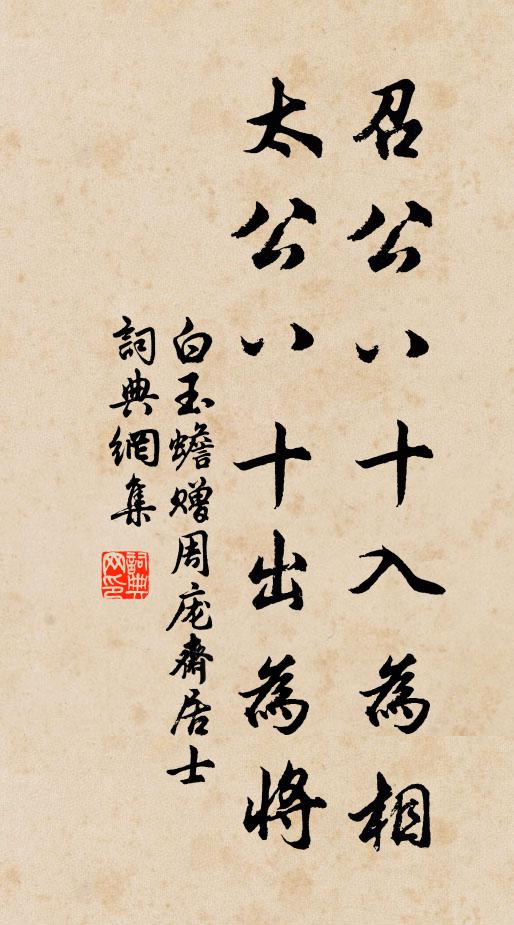 召公八十入為相
太公八十出為將
白玉蟾赠周庬齋居士
詞典網集
詞典網印